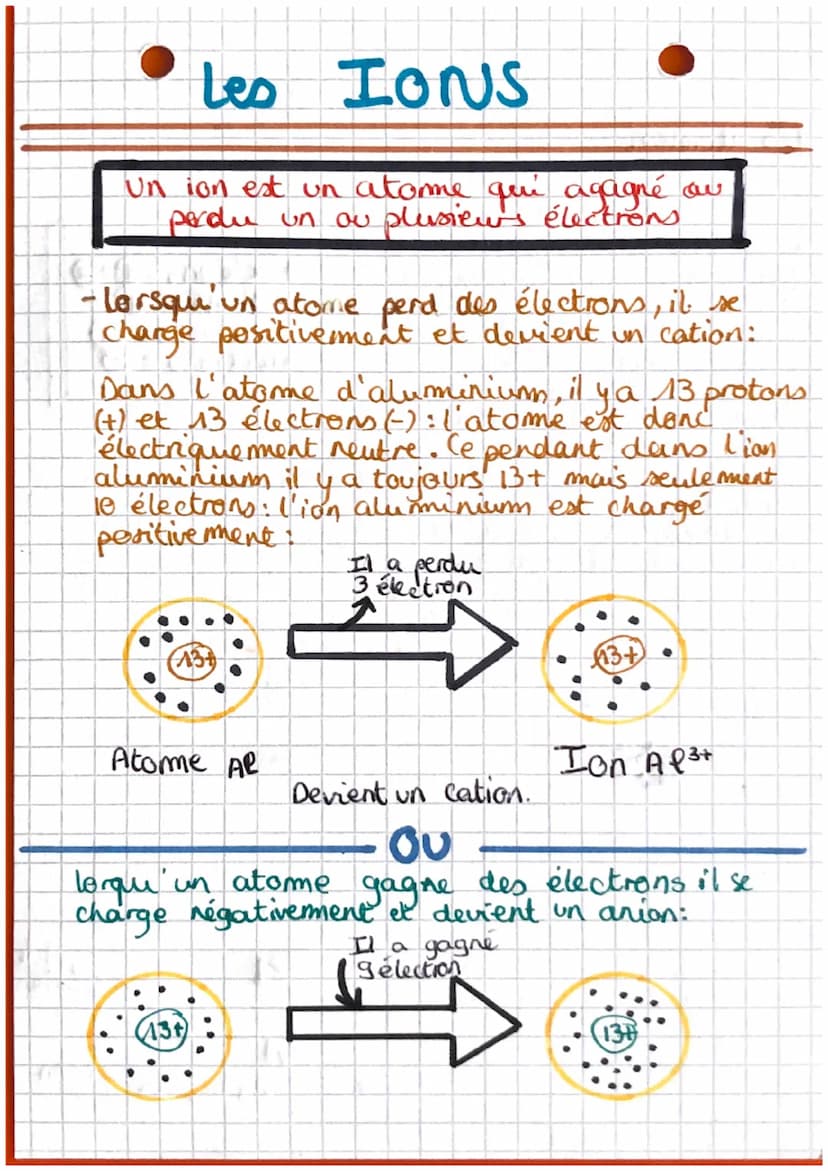 Les IONS
Un ion est un atome qui agagné ou
perdu un ou plusieurs électrons
- Lorsqu'un atome perd des électrons, il se
charge positivement et devient un cation:
Dans l'atome d'aluminium, il y a 13 protons
(+) et 13 électrons (-) : l'atome est donc
électriquement neutre. Cependant dans l'ion
aluminium il y a toujours 13+ mais seulement
10 électrons: l'ion aluminium est chargé
positivement :
Il a perdu
3 électron
13+
13+
Atome Al
Ion Al³⁺
Devient un cation.
OU
lorqu'un atome gagne des électrons il se
charge négativement et devient un anion:
Il a gagné
9 élection
13+
13+